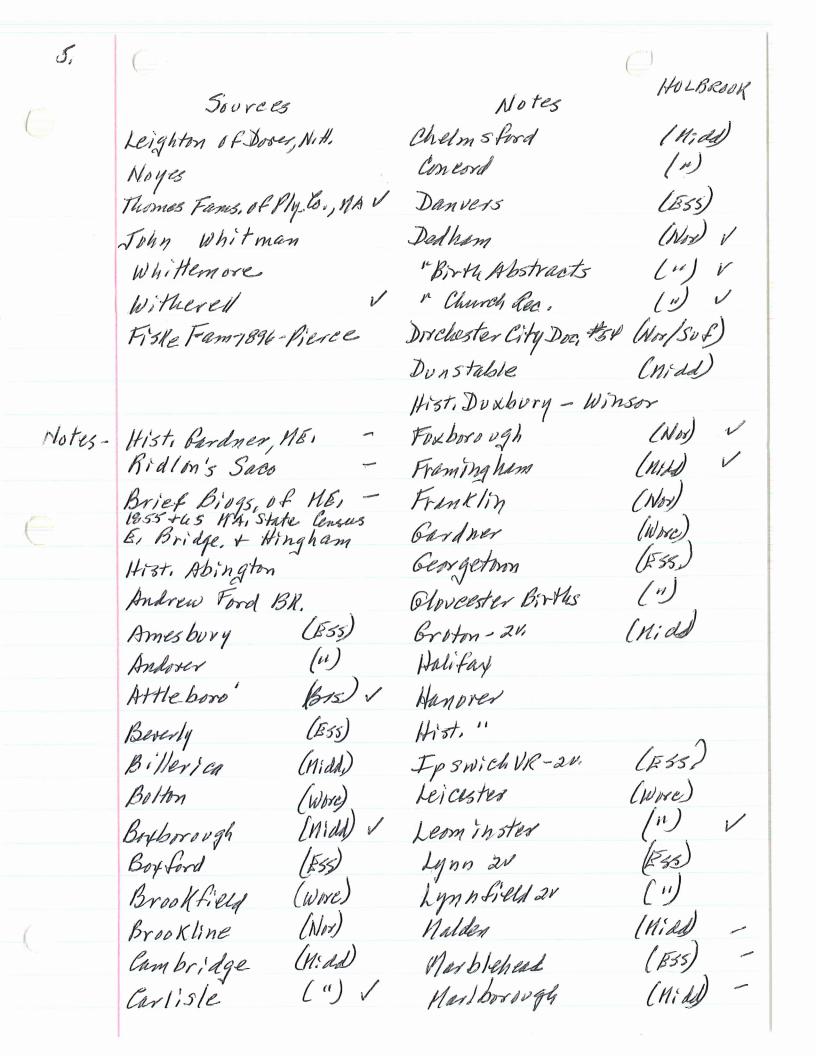 5.
HOLBROOK
Sources
Leighton of Dover, N.H.
Noyes
Thomas Fams. of Ply. Co., MA ✓
John Whitman
Whittemore
Witherell ✓
Fiske Fam-1896-Pierce
Notes - Hist. Gardner, ME. -
Ridlon's Saco -
Brief Biogs. of ME. -
1855 + 65 MA. State Census
E. Bridge. + Hingham
Hist. Abington
Andrew Ford BR.
Amesbury (Ess)
Andover (")
Attleboro' (Brs) ✓
Beverly (Ess)
Billerica (Midd)
Bolton (Worc)
Boxborough (Midd) ✓
Boxford (Ess)
Brookfield (Worc)
Brookline (Nor)
Cambridge (Midd)
Carlisle (") ✓
Notes
Chelmsford (Midd)
Concord (")
Danvers (Ess)
Dedham (Nor) ✓
" Birth Abstracts (") ✓
" Church Rec. (") ✓
Dorchester City Doc. #54 (Nor/Suf)
Dunstable (Midd)
Hist. Duxbury - Winsor
Foxborough (Nor) ✓
Framingham (Midd) ✓
Franklin (Nor)
Gardner (Worc)
Georgetown (Ess.)
Gloucester Births (")
Groton - 2v. (Midd)
Halifax
Hanover
Hist. "
Ipswich VR - 2v. (Ess.)
Leicester (Worc)
Leominster (") ✓
Lynn 2v (Ess)
Lynnfield 2v (")
Malden (Midd) -
Marblehead (Ess) -
Marlborough (Midd) -